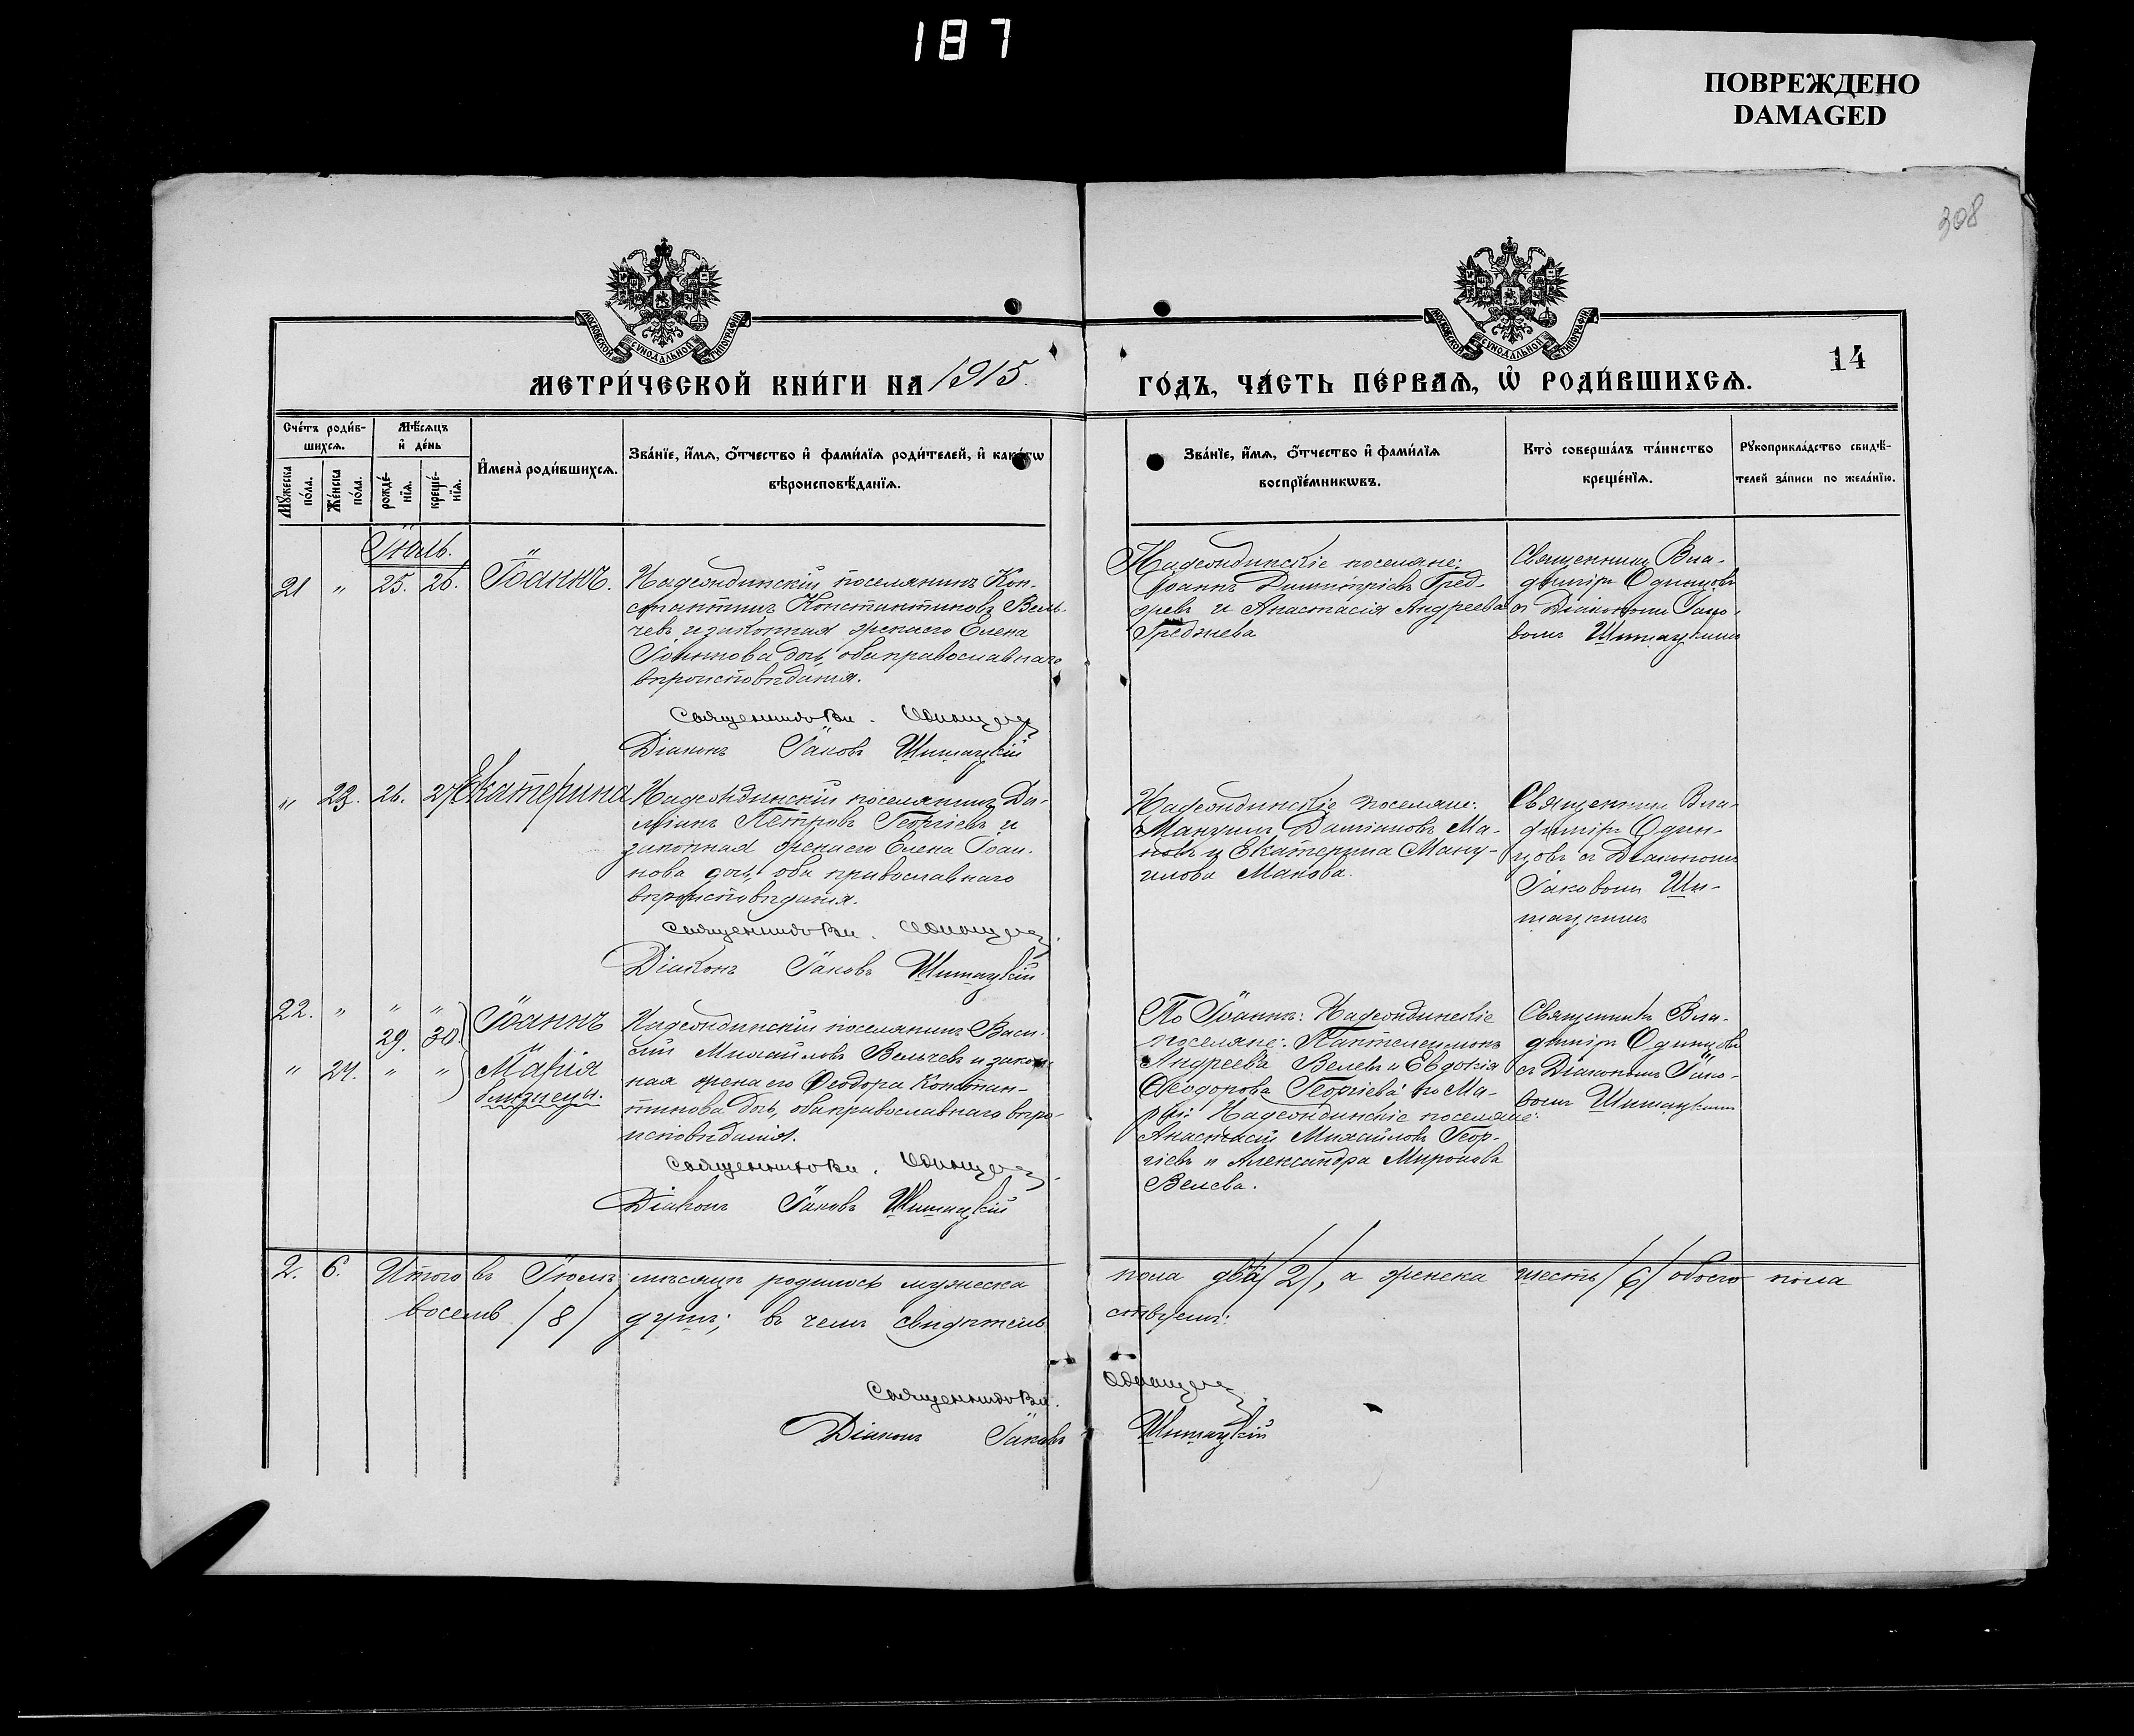 187
ПОВРЕЖДЕНО
DAMAGED
308
МОСКОВСКОЙ СѴНОДАЛЬНОЙ ТИПОГРАФІИ
МОСКОВСКОЙ СѴНОДАЛЬНОЙ ТИПОГРАФІИ
МЕТРИ́ЧЕСКОЙ КНИ́ГИ НА 1915.
ГО́ДЪ, ЧА́СТЬ ПЕ́РВАѦ, Ѽ РОДИ́ВШИХСѦ.
14
Сче́тъ роди́в-
шихсѧ.
Мꙋжеска
по́ла.
Же́нска
по́ла.
Мѣ́сяцъ
и҆ де́нь
рожде́-
нїѧ.
креще́-
нїѧ.
И҆мена̀ роди́вшихсѧ.
Зва́нїе, и҆́мѧ, ѻ҆́тчество и҆ фами́лїѧ роди́телей, и҆ како́гѡ
вѣроисповѣ́данїѧ.
Зва́нїе, и҆́мѧ, ѻ҆́тчество и҆ фами́лїѧ
воспрїе́мникѡвъ.
Кто̀ соверша́лъ та́инство
креще́нїѧ.
Рꙋкоприкла́дство свидѣ́-
телей за́писи по жела́нїю.
Іюль.
21 " 25. 26. Іоаннъ.
Надеондинскій поселянинъ Кон-
стантинъ Константиновъ Вель-
чевъ и законная жена его Елена
Іоаннова дочь, оба православнаго
вѣроисповѣданія.
Діаконъ Іаковъ Шишацкій
поселяне:
Іоаннъ Димитріевъ Гред-
жевъ и Анастасія Андреева
Греджева
Священникъ Вла-
диміръ Одинцовъ
съ Діакономъ Іако-
вомъ Шишацкимъ
" 23. 26. 27. Екатерина
поселянинъ Да-
міанъ Петровъ Георгіевъ и
законная жена его Елена Іоан-
нова дочь, оба православнаго
вѣроисповѣданія.
Діаконъ Іаковъ Шишацкій
поселяне:
Мануилъ Даміановъ Ма-
новъ и Екатерина Ману-
илова Манова.
Священникъ Вла-
диміръ Один-
цовъ съ Діакономъ
Іаковомъ Ши-
шацкимъ
22. " " "
29. 30.
Іоаннъ
" 24. " " Марія
близнецы.
поселянинъ Васи-
лій Михаиловъ Вельчевъ и закон-
ная жена его Ѳеодора Констан-
тинова дочь, оба православнаго вѣро-
исповѣданія.
Діаконъ Іаковъ Шишацкій
По Іоаннѣ:
поселяне: Пантелеимонъ
Андреевъ Велевъ и Евдокія
Ѳеодорова Георгіева; по Ма-
ріи: поселяне:
Анастасій Михаиловъ Геор-
гіевъ и Александра Миронова
Велева.
Священникъ Вла-
диміръ Одинцовъ
съ Діакономъ Іако-
вомъ Шишацкимъ
2. 6. Итого въ Іюлѣ мѣсяцѣ родилось мужеска пола два /2/, а женска шесть /6/ обоего пола
восемь /8/ душъ; въ чемъ свидѣтель ствуемъ:
Діаконъ Іаковъ Шишацкій